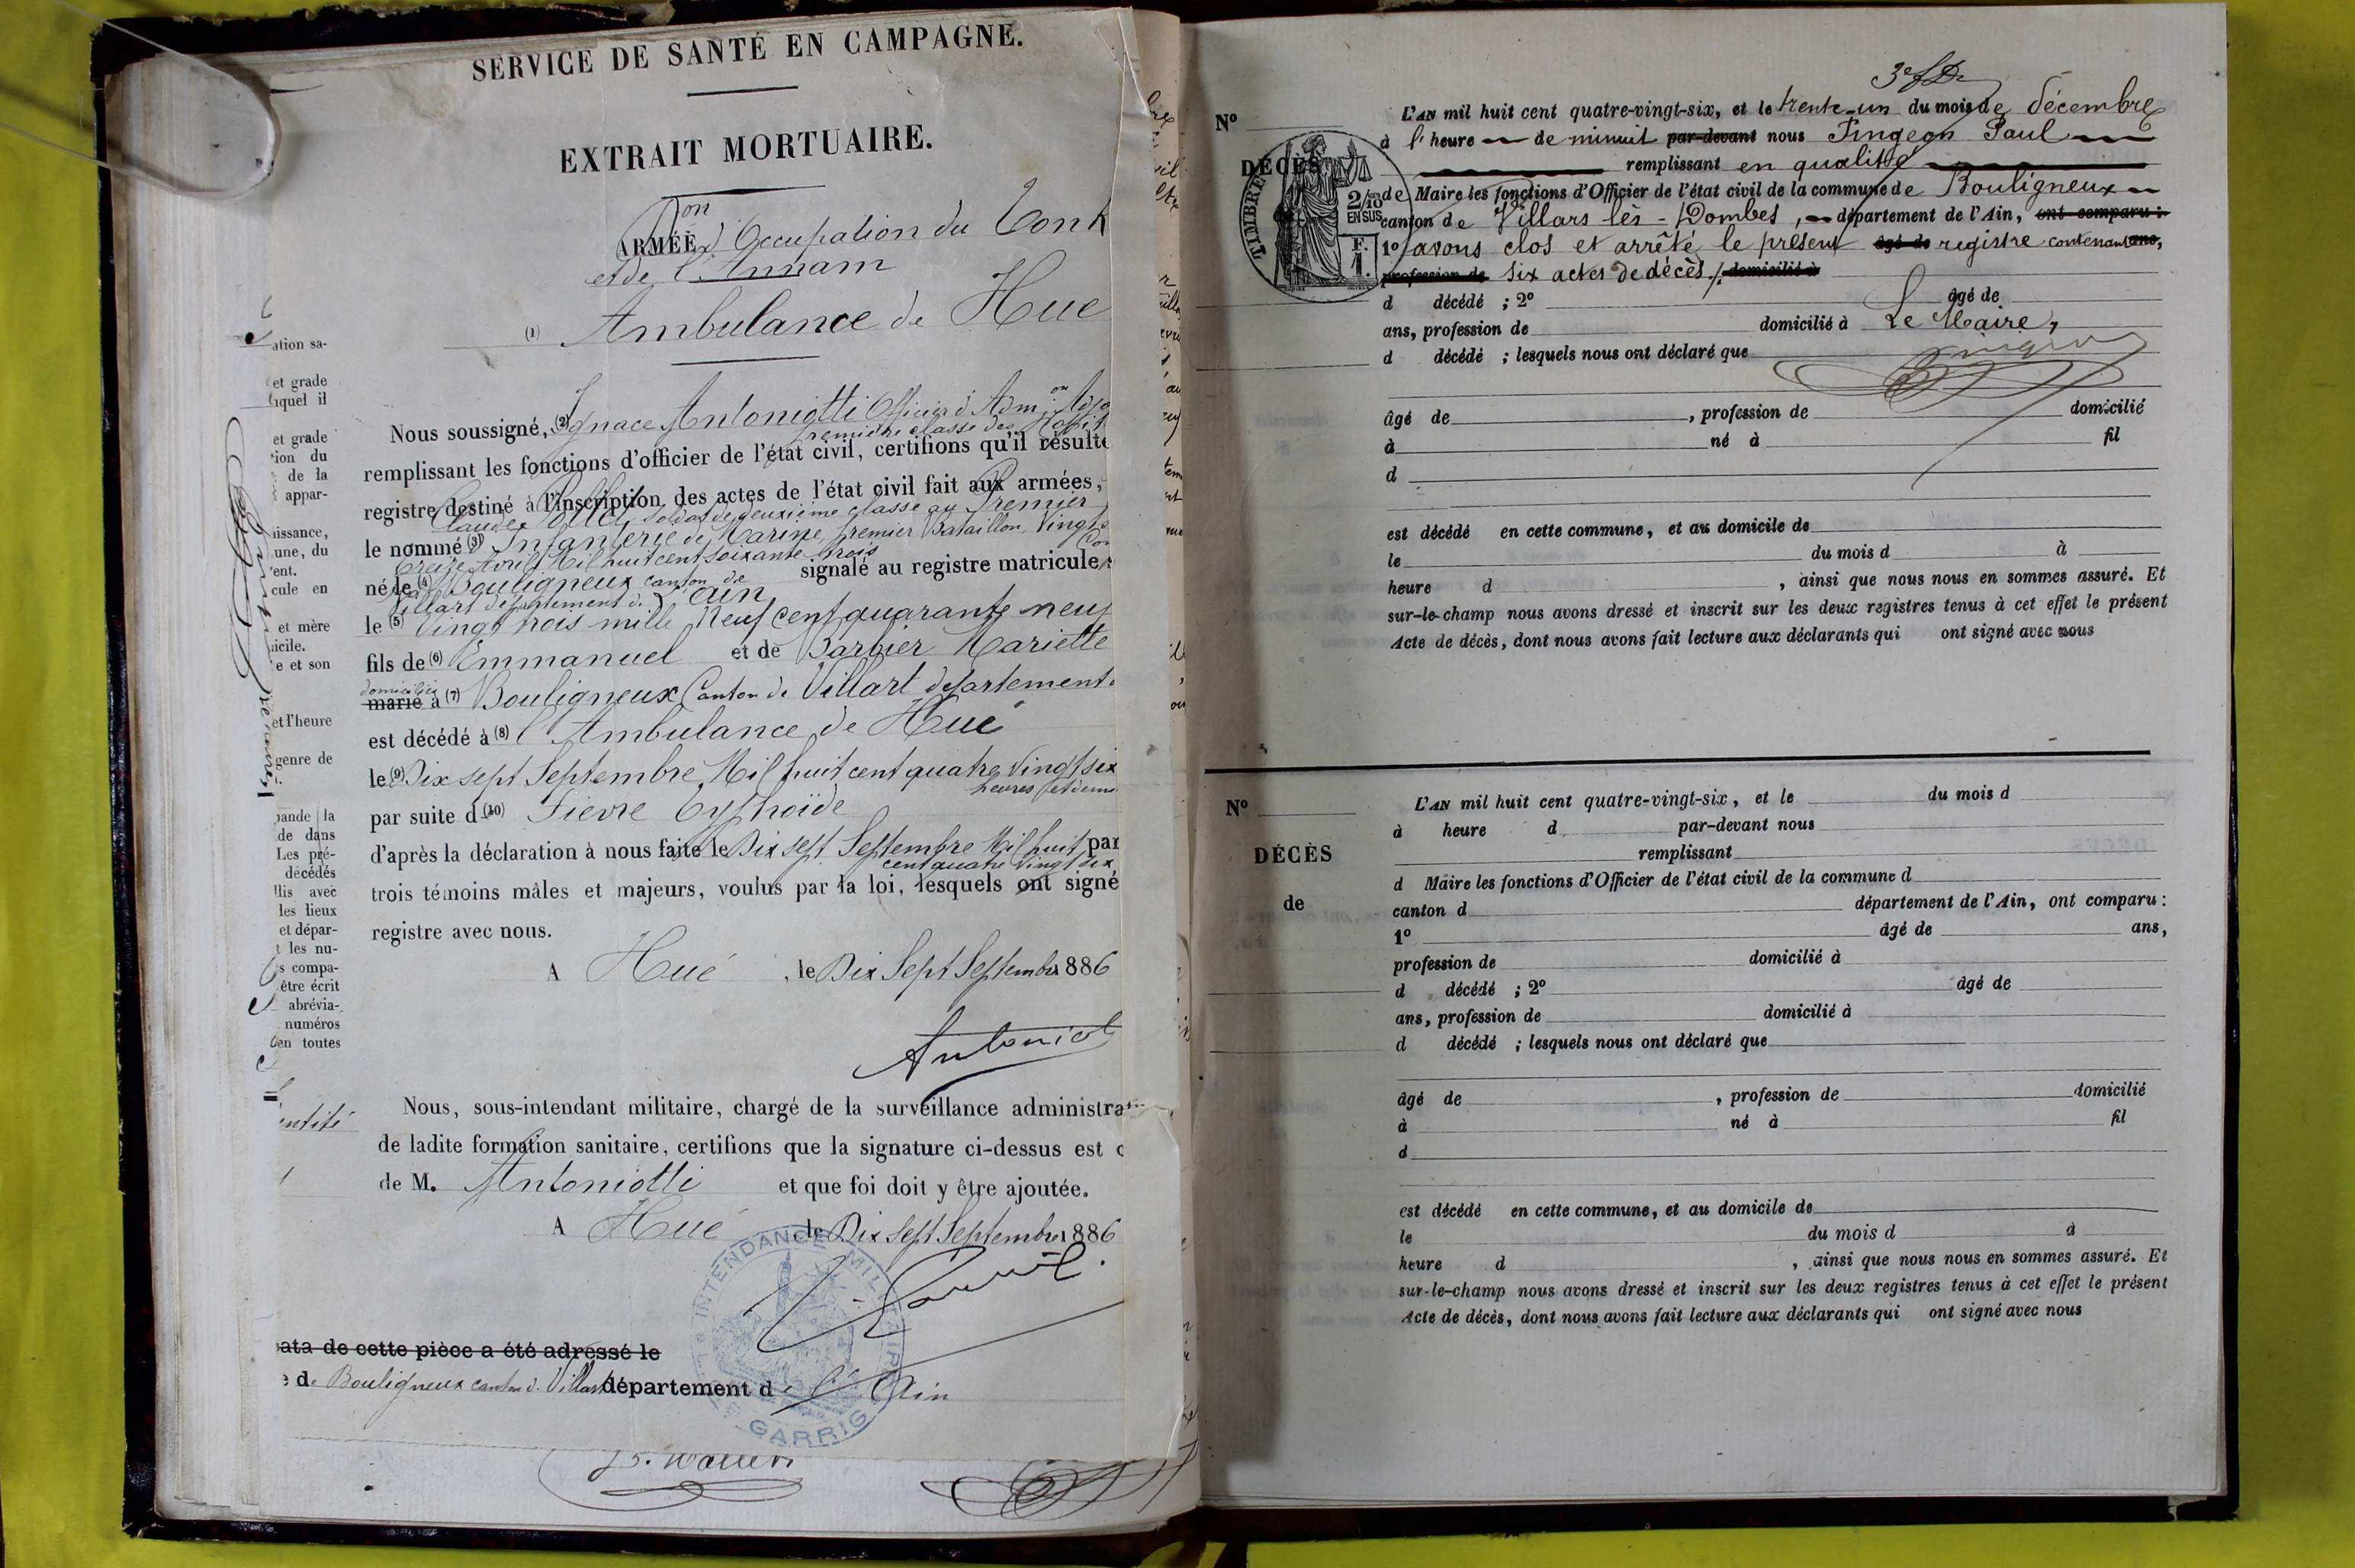 SERVICE DE SANTÉ EN CAMPAGNE.
EXTRAIT MORTUAIRE.
Don
ARMÉE d'Occupation du Tonk
et de l'Annam
(1) Ambulance de Hue
ation sa-
et grade
quel il
et grade
ion du
de la
appar-
issance,
une, du
ent.
cule en
et mère
icile.
e et son
et l'heure
genre de
ande la
de dans
Les pré-
décédés
llis avec
les lieux
et dépar-
t les nu-
s compa-
être écrit
abrévia-
numéros
en toutes
entité
Nous soussigné, (2) Ignace Antoniotti Officier d'Admion Adjo
première classe des Hopit
remplissant les fonctions d'officier de l'état civil, certifions qu'il résulte
registre destiné à l'inscription des actes de l'état civil fait aux armées,
Claude soldat de deuxième classe au Premier
le nommé (3) Infanterie de Marine premier Bataillon Vingt
Treize Avril Mil huit cent soixante trois
né le (4) à Bouligneux canton de signalé au registre matricule
Villart département de L'ain
le (5) Vingt trois mille Neuf cent quarante neuf
fils de (6) Emmanuel et de Barbier Mariette
domiciliés
marié à (7) Bouligneux Canton de Villart département
est décédé à (8) l'Ambulance de Hué
le (9) Dix sept Septembre Mil huit cent quatre Vingt six
heures et demi
par suite d (10) Fievre Typhoïde
d'après la déclaration à nous faite le Dix sept Septembre Mil huit par
cent quatre Vingt six
trois témoins mâles et majeurs, voulus par la loi, lesquels ont signé
registre avec nous.
A Hué, le Dix Sept Septembre 1886
Antoniot
Nous, sous-intendant militaire, chargé de la surveillance administrat
de ladite formation sanitaire, certifions que la signature ci-dessus est c
de M. Antoniotti et que foi doit y être ajoutée.
A Hué le Dix Sept Septembre 1886
INTENDANCE MILITAIRE
GARRIG
ata de cette pièce a été adressé le
e de Bouligneux canton de Villart département de l'Ain
No
DÉCÈS
TIMBRE
2/10
EN SUS
F.
1.
L'AN mil huit cent quatre-vingt-six, et le trente-un du mois de décembre
à l'heure de minuit par-devant nous Pingeon Paul
remplissant en qualité
de Maire les fonctions d'Officier de l'état civil de la commune de Bouligneux
canton de Villars les-Dombes, département de l'Ain, ont comparu :
1o avons clos et arrêté le présent âgé de registre contenant ans,
profession de six actes de décès /. domicilié à
d décédé ; 2o âgé de
ans, profession de domicilié à Le Maire,
d décédé ; lesquels nous ont déclaré que Pingeon
âgé de , profession de domicilié
à né à fil
d
est décédé en cette commune, et au domicile de
le du mois d à
heure d , ainsi que nous nous en sommes assuré. Et
sur-le-champ nous avons dressé et inscrit sur les deux registres tenus à cet effet le présent
Acte de décès, dont nous avons fait lecture aux déclarants qui ont signé avec nous
No
DÉCÈS
de
L'AN mil huit cent quatre-vingt-six, et le du mois d
à heure d par-devant nous
remplissant
d Maire les fonctions d'Officier de l'état civil de la commune d
canton d département de l'Ain, ont comparu :
1o âgé de ans,
profession de domicilié à
d décédé ; 2o âgé de
ans, profession de domicilié à
d décédé ; lesquels nous ont déclaré que
âgé de , profession de domicilié
à né à fil
d
est décédé en cette commune, et au domicile de
le du mois d à
heure d , ainsi que nous nous en sommes assuré. Et
sur-le-champ nous avons dressé et inscrit sur les deux registres tenus à cet effet le présent
Acte de décès, dont nous avons fait lecture aux déclarants qui ont signé avec nous